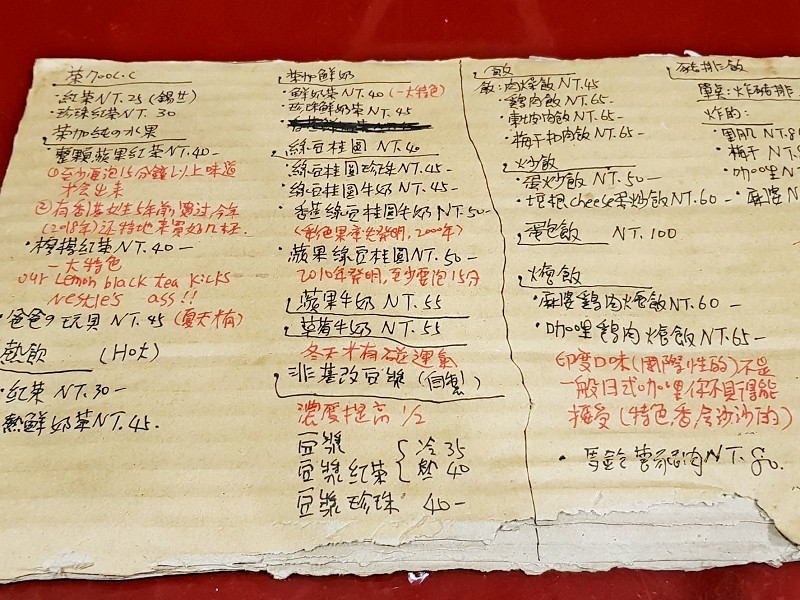 茶700c.c
·紅茶NT.25(錫世)
·珍珠紅茶NT.30
茶加純の水果
·整顆蘋果紅茶NT.40-
①至少要泡15分鐘以上味道
才會出來
②有香港女生5年前遇过,今年
(2018年)还特地來買好几杯.
·檸檬紅茶NT.40-
-大特色
our lemon black tea kicks
nestle's ass!!
·爸爸の玩具NT.45(夏天才有)
热飲 (Hot)
·紅茶NT.30-
熱鮮奶茶NT.45.
茶加鮮奶
·鮮奶茶NT.40(一大特色)
·珍珠鮮奶茶NT.45
綠豆桂圓NT.40
·綠豆桂圓珍珠NT.45-
·綠豆桂圓牛奶NT.45-
·香蕉綠豆桂圓牛奶NT.50-
·蘋果綠豆桂圓NT.50-
2010年發明,至少要泡15分
蘋果牛奶NT.55
草莓牛奶NT.55
冬天才有碰運氣
非基改豆漿(自製)
濃度提高1/2
豆漿 {冷35
豆漿紅茶 {熱40
豆漿珍珠 40-
飯
飯:肉燥飯NT.45
·鷄肉飯NT.65-
·東坡肉飯NT.65-
·梅干扣肉飯NT.65-
炒飯
·蛋炒飯NT.50-
·培根cheese蛋炒飯NT.60-
蛋包飯 NT.100
燴飯
·麻婆鷄肉燴飯NT.60-
·咖哩鷄肉燴飯NT.65-
印度口味(國際性的)不是
一般日式咖哩你不見得能
接受(特色香含沙沙的)
·馬鈴薯NT.80.
豬排飯
單點:炸豬排
炸的:
·里肌NT.8
·梅干NT.
·咖哩N
·麻婆N